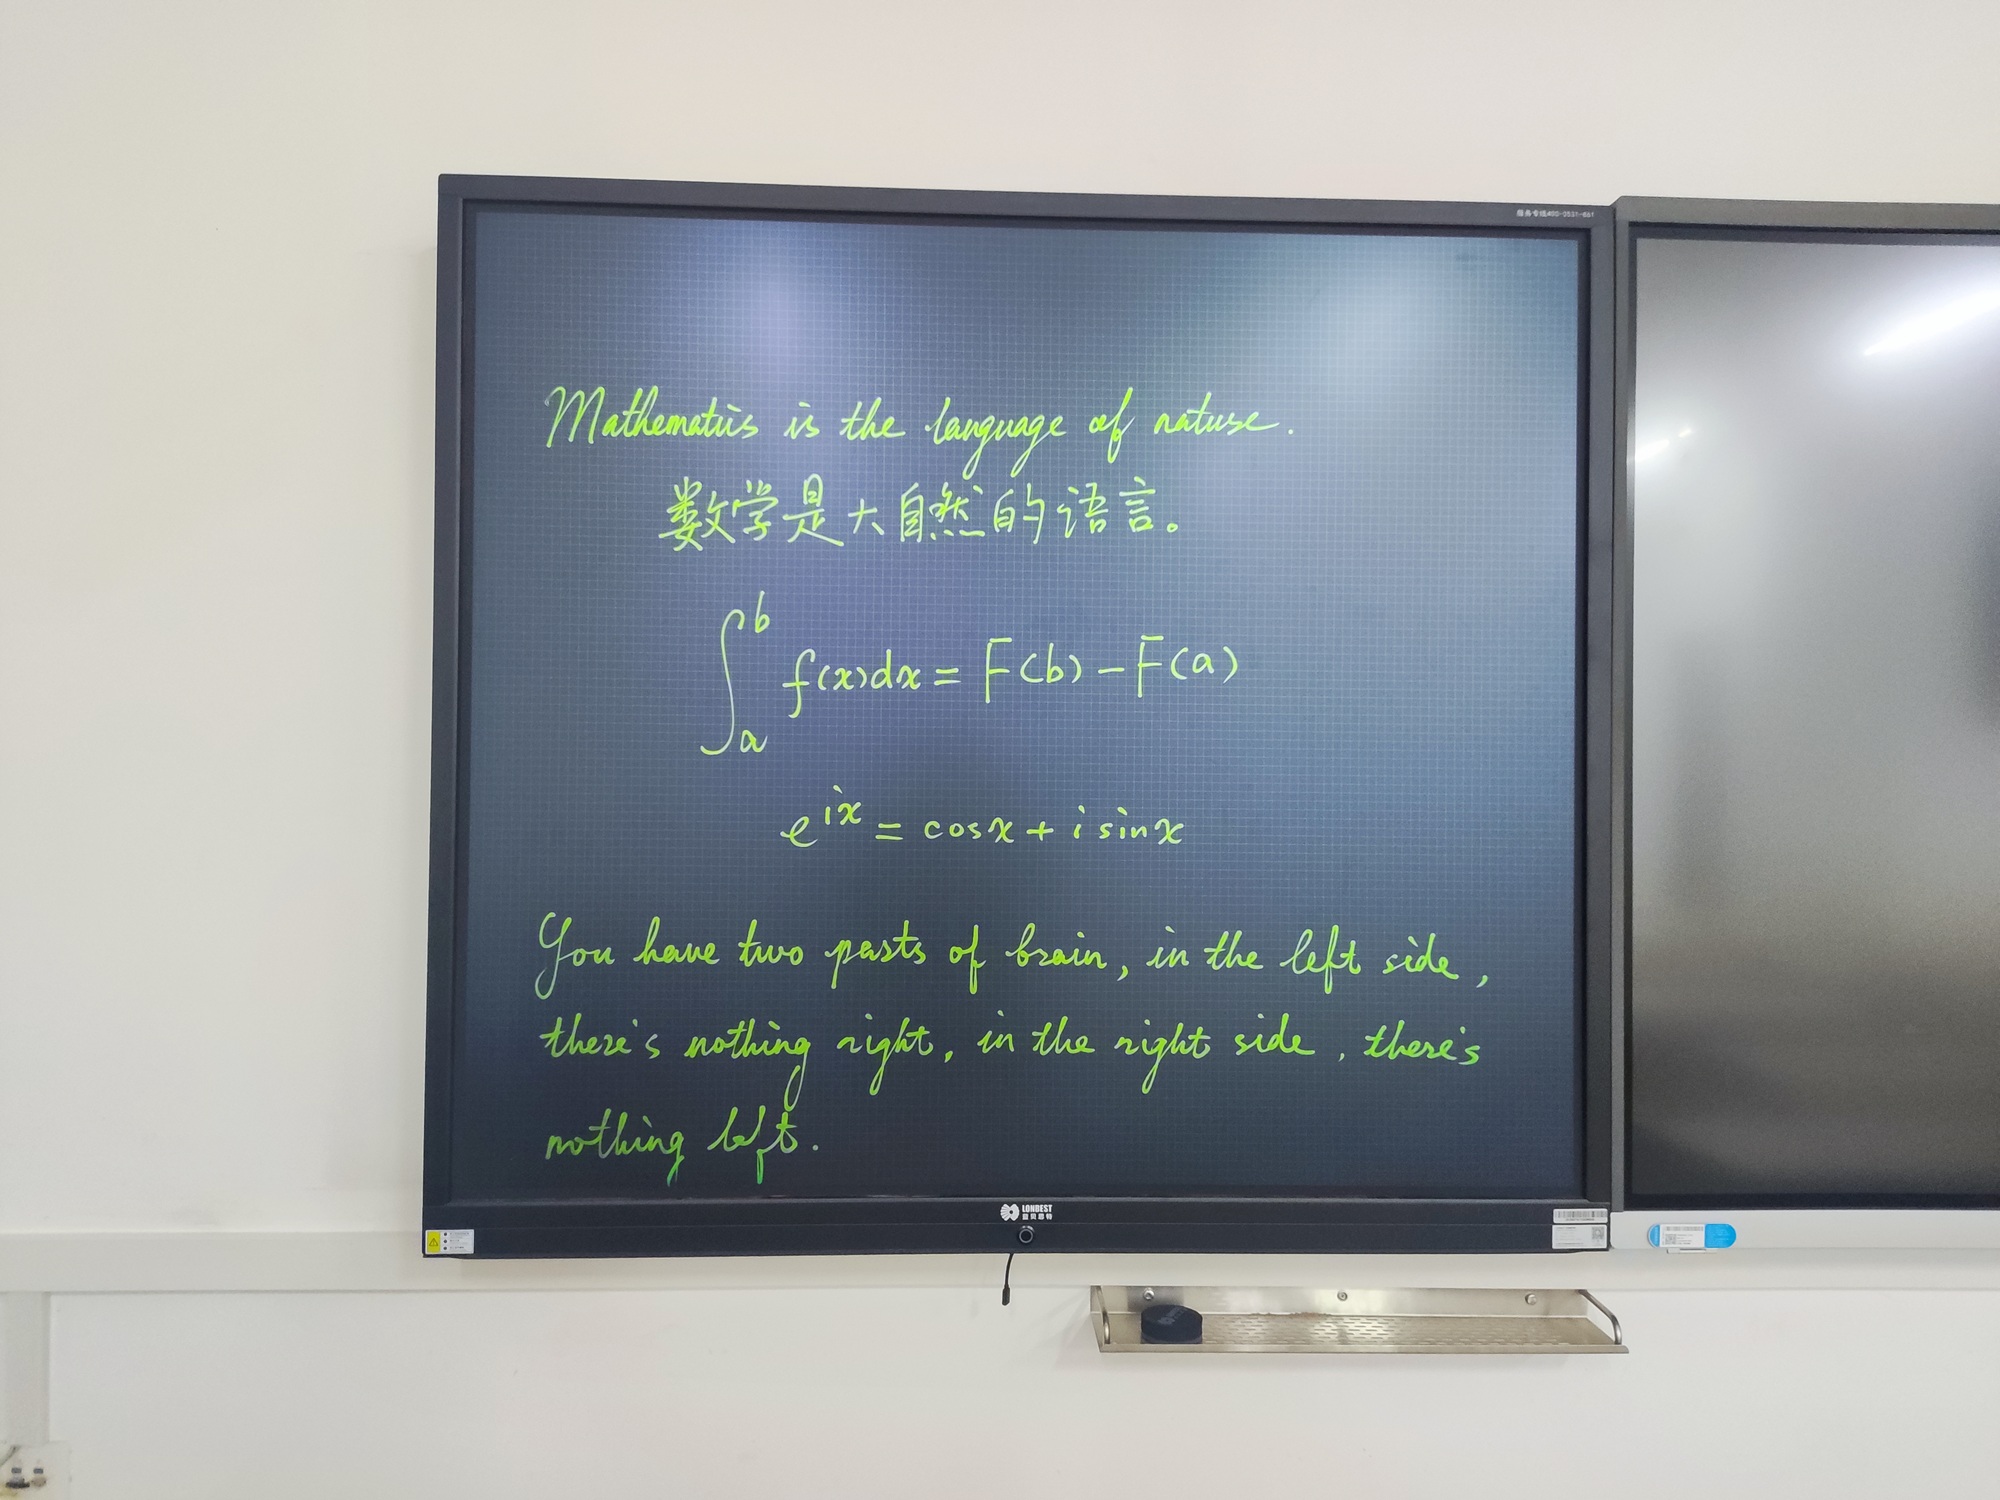 Mathematics is the language of nature.
数学是大自然的语言。
∫_a^b f(x)dx = F(b) - F(a)
e^{ix} = cosx + i sinx
You have two parts of brain, in the left side,
there's nothing right, in the right side, there's
nothing left.
LONBEST